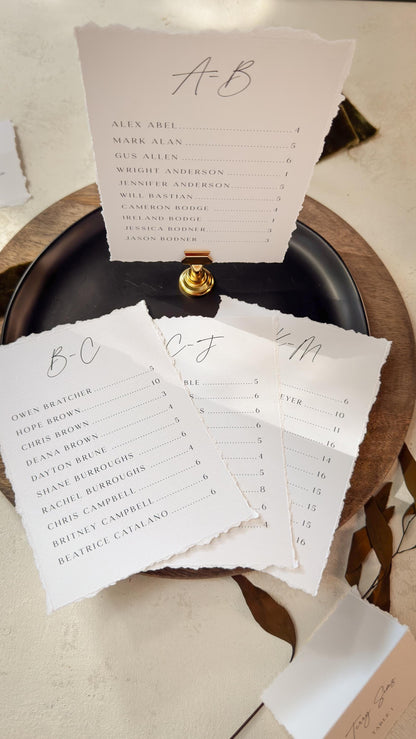 A-B
ALEX ABEL 4
MARK ALAN 5
GUS ALLEN 6
WRIGHT ANDERSON 1
JENNIFER ANDERSON 5
WILL BASTIAN 5
CAMERON BODGE 4
IRELAND BODGE 4
JESSICA BODNER 3
JASON BODNER 3
B-C
OWEN BRATCHER 5
HOPE BROWN 10
CHRIS BROWN 3
DEANA BROWN 4
DAYTON BRUNE 5
SHANE BURROUGHS 6
RACHEL BURROUGHS 4
CHRIS CAMPBELL 6
BRITNEY CAMPBELL 6
BEATRICE CATALANO 6
C-J
BLE 5
S 6
6
6
5
4
5
8
6
4
K-M
EYER 6
10
11
16
14
16
16
15
16
15
TABLE 1